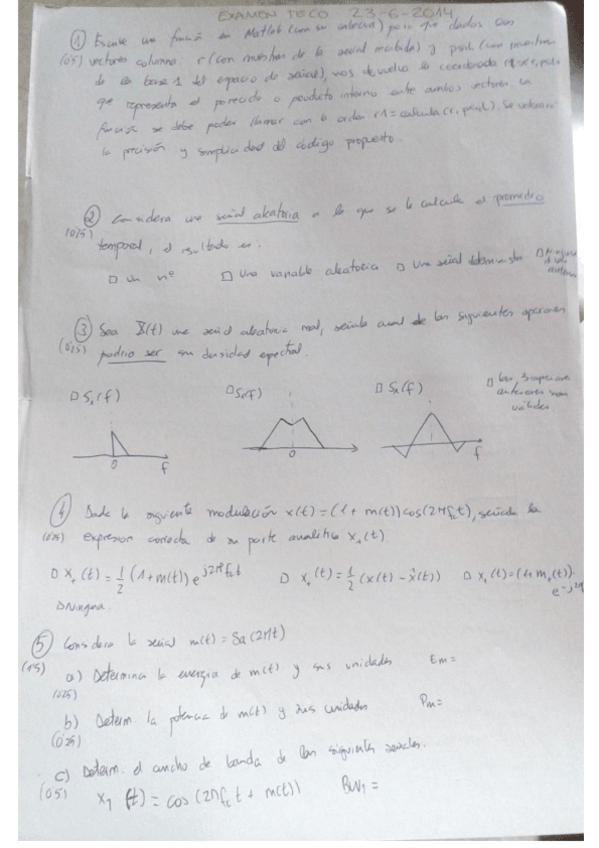 EXAMEN TECO 23-6-2014
① Escribe una función en Matlab (con su cabecera) para que dados dos
(0'5) vectores columna: r (con muestras de la señal recibida) y psi1 (con muestras
de la base 1 del espacio de señal), nos devuelva la coordenada
que representa el parecido o producto interno entre ambos vectores. La
función se debe poder llamar con la orden r1 = calcula(r, psi1). Se valorará
la precisión y simplicidad del código propuesto.
② Considera una señal aleatoria a la que se le calcula el promedio
(0'25) temporal, el resultado es:
□ Un nº □ Una variable aleatoria □ Una señal determinista □ Ninguna
③ Sea X(t) una señal aleatoria real, señala cual de las siguientes opciones
(0'25) podría ser su densidad espectral.
□ Sx(f) □ Sx(f) □ Sx(f) □ Las 3 opciones
anteriores son
válidas
0 f
0
f
④ Dada la siguiente modulación x(t) = (1 + m(t)) cos(2πfct), señala la
(0'25) expresión correcta de su parte analítica x+(t).
□ x+(t) = 1/2 (1+m(t)) e^j2πfct □ x+(t) = 1/2 (x(t) - x̂(t)) □ x+(t) = (1+m+(t)).
□ Ninguna.
⑤ Considera la señal m(t) = Sa(2πt)
(1'5) a) Determina la energía de m(t) y sus unidades Em =
(0'25)
b) Determ. la potencia de m(t) y sus unidades Pm =
(0'25)
c) Determ. el ancho de banda de las siguientes señales.
(0'5) x1(t) = cos(2πfct + m(t)) BW1 =